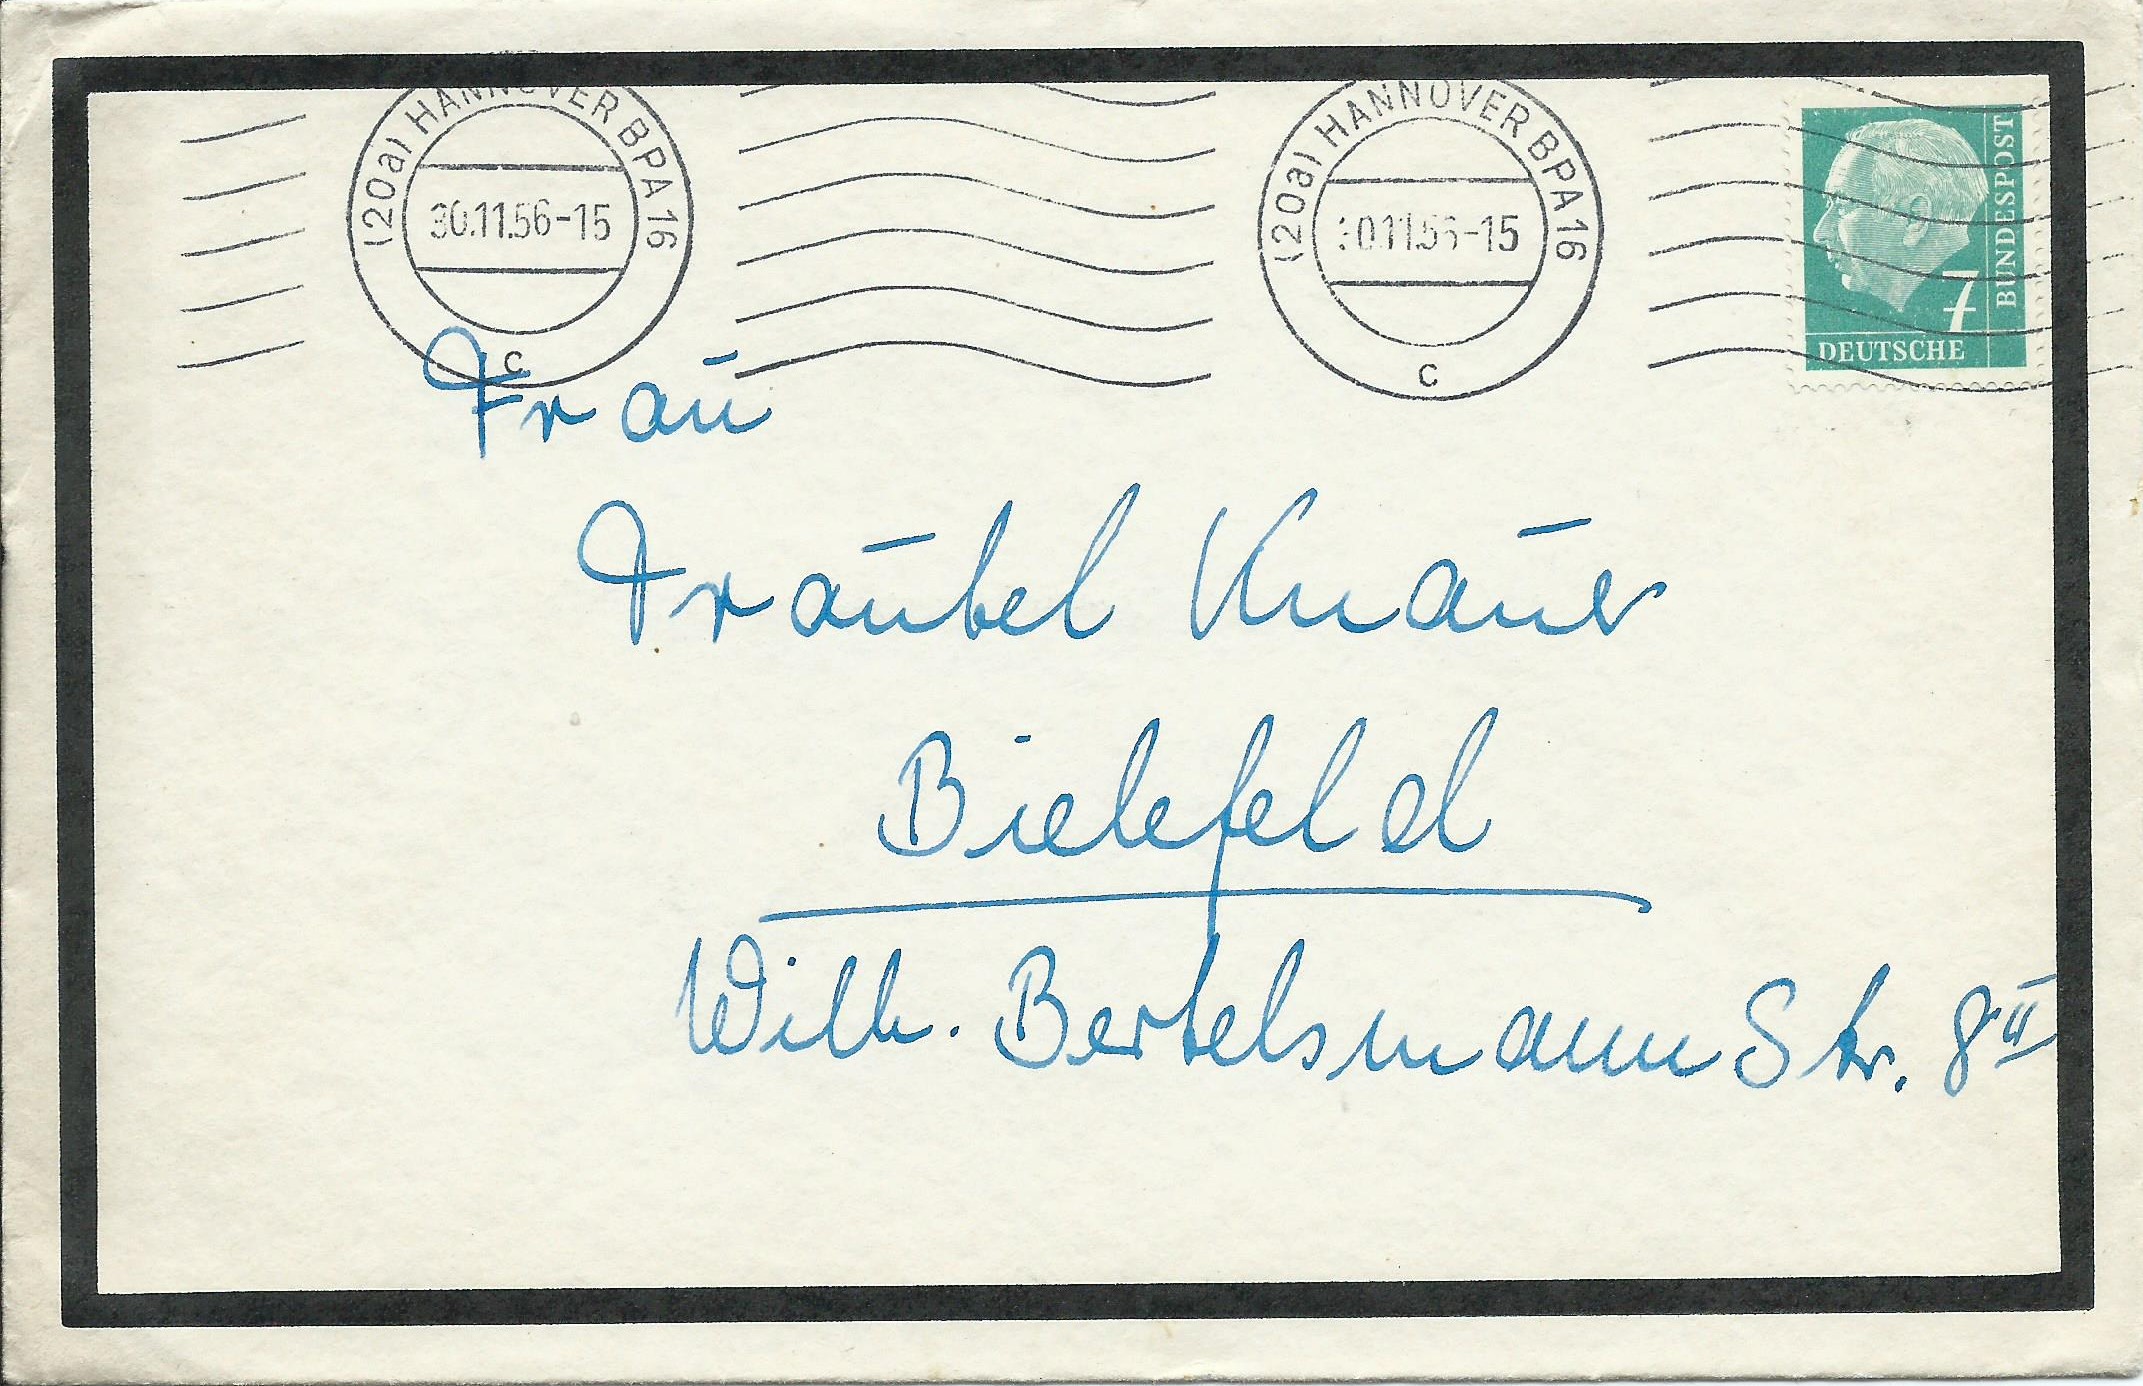 (20a) HANNOVER BPA 16
30.11.56-15
c
(20a) HANNOVER BPA 16
30.11.56-15
c
7
BUNDESPOST
DEUTSCHE
Frau
Traubel Knauer
Bielefeld
Wilh. Bertelsmann Str. 8 II